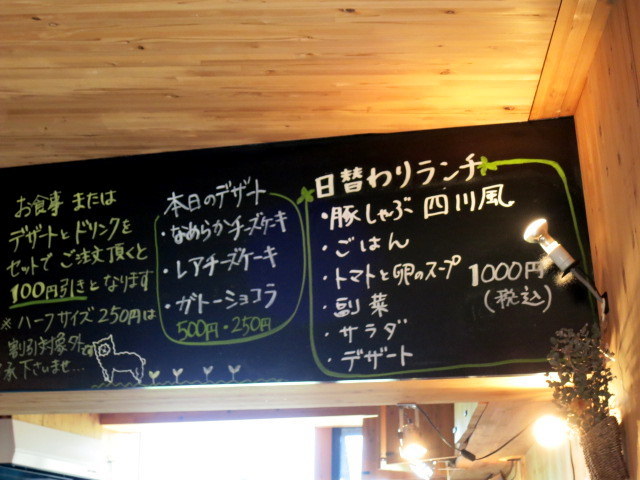 お食事 または
デザートと ドリンクを
セットで ご注文頂くと
100円引きとなります
※ ハーフサイズ 250円は
割引対象外です
承下さいませ…
本日のデザート
・なめらかチーズケーキ
・レアチーズケーキ
・ガトーショコラ
500円・250円
日替わりランチ
・豚しゃぶ 四川風
・ごはん
・トマトと卵のスープ
・副菜
・サラダ
・デザート
1000円
(税込)